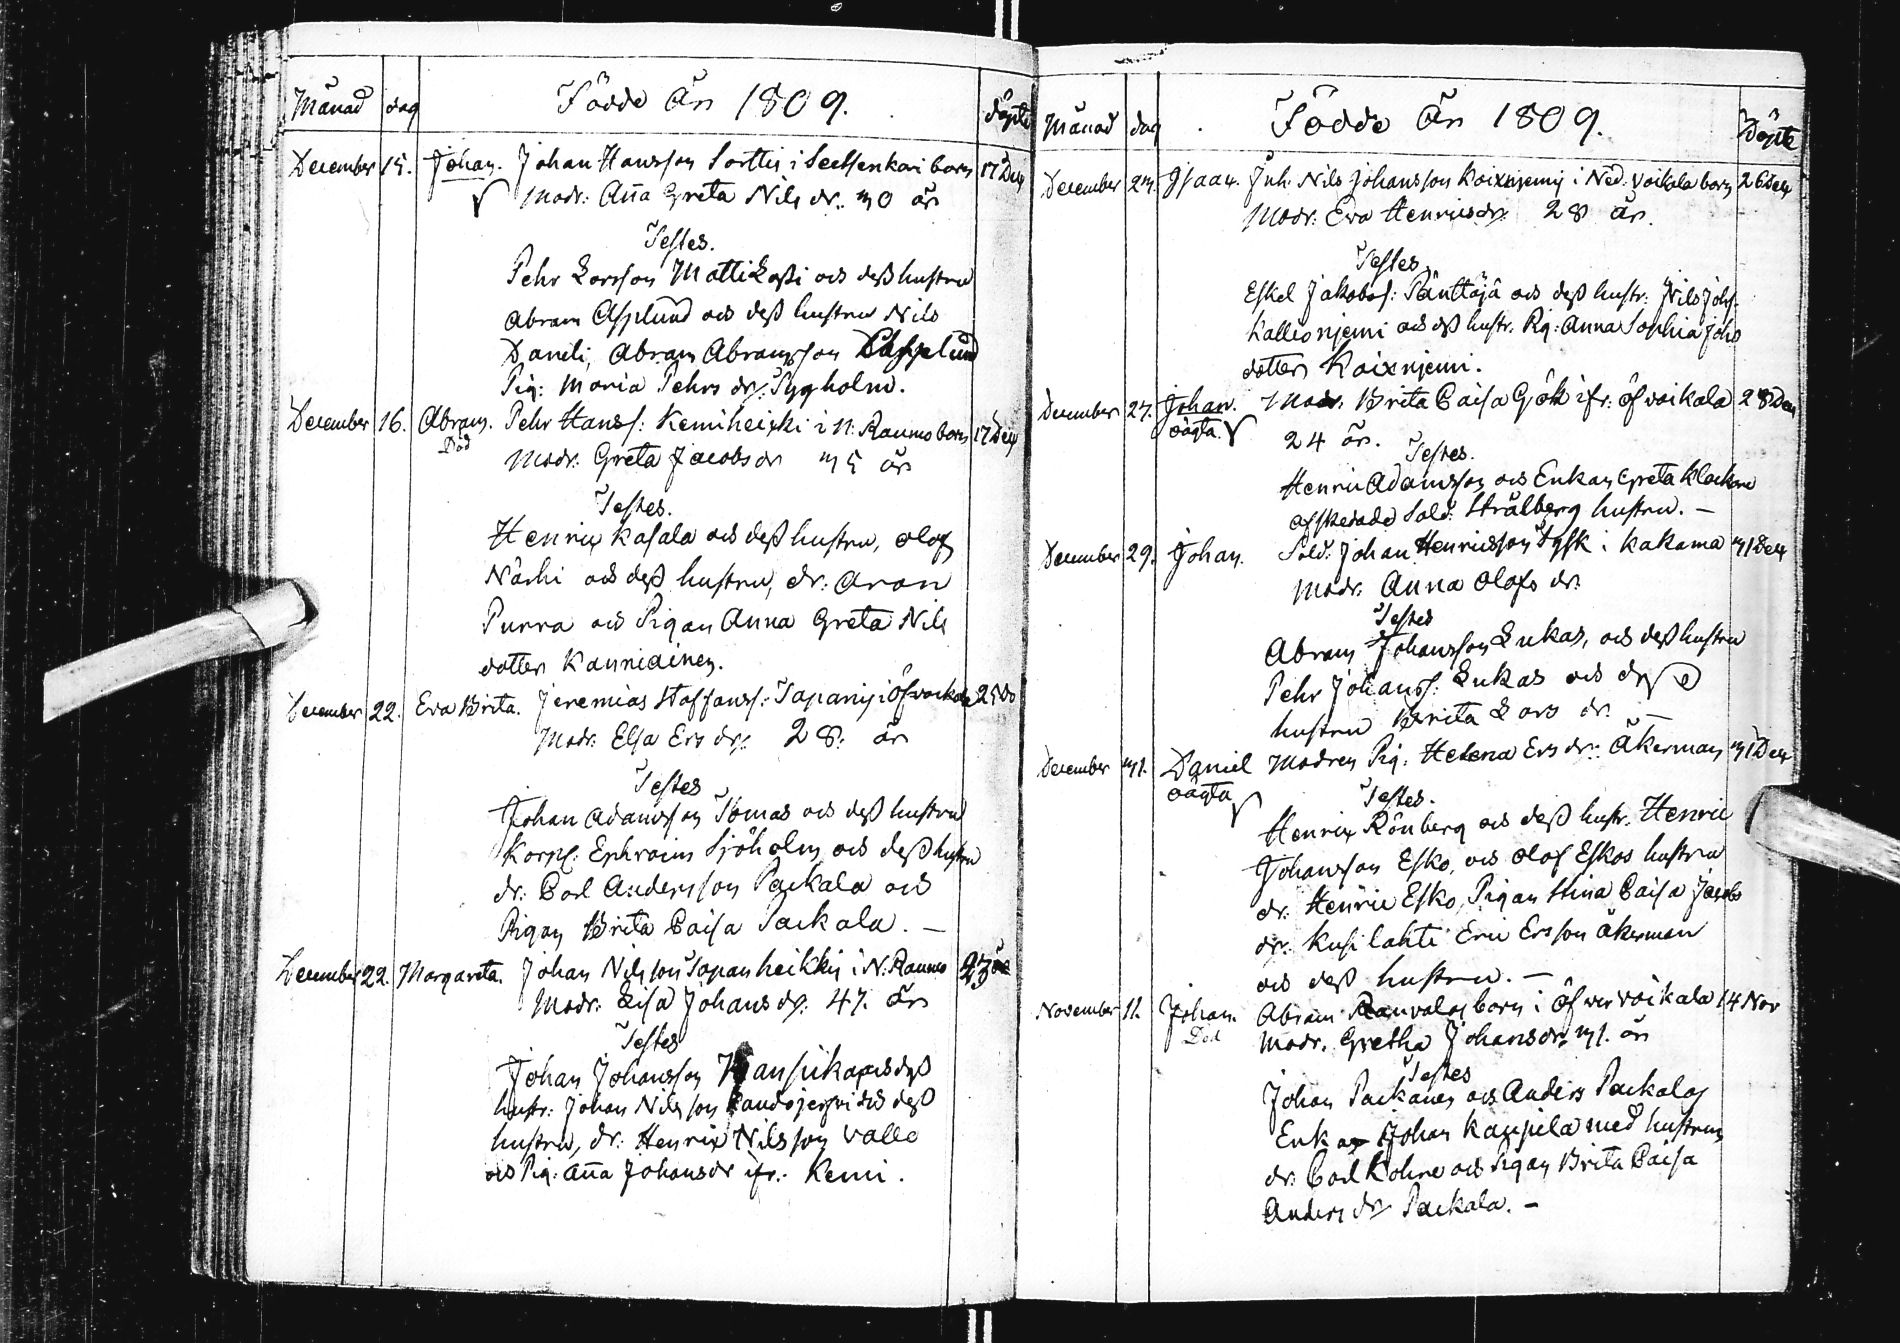 Månad dag Födde År 1809. döpte
December 15. Johan. Johan Hansson Sorttis i Seessenkari barn 17 Dec
Modr: Aña Greta Nils dr. 30 år
Testes.
Pehr Larsson Matti Lassi och dess hustru
Abram Asplund och dess hustru Nils
Daneli, Abram Abramsson Lassplund
Pig: Maria Pehrs dr: Sygholm.
December 16. Abram. Pehr Hanss: Kemiheikki i N: Raumo barn 17 Dec
Död
Modr: Greta Jacobs dr 35 år
Testes.
Henrix Kasala och dess hustru, Olof
Närhi och dess hustru, dr: Aron
Purra och Pigan Anna Greta Nils
dotter Kauniainen.
December 22. Eva Brita. Jeremias Staffans: Tapani i Öfvoikala 25 Do
Modr: Elsa Ers dr: 28: år
Testes
Johan Adamsson Tomas och dess hustru
Korpl: Ephraim Sjöholm och dess hustru
dr: Carl Andersson Packala och
Pigan Brita Caisa Packala. —
December 22. Margareta. Johan Nilsson Tapanheikki i N: Raumo 23
Modr: Lisa Johans dr: 47. år
Testes
Johan Johansson Kansikas och dess
hustr: Johan Nilsson Kandojerfvi och dess
hustru, dr: Henrix Nilsson Valle
och Pig: Aña Johans dr ifr: Kemi.
Månad dag Födde År 1809. Döpte
December 23. Isaac. Inh: Nils Johansson Koixnjemi i Ned: Voikala barn 26 Dec
Modr: Eva Henricsdr: 28 år.
Testes
Eskel Jakobs: Pänttäjä och dess hustr: Nils Johs:
Kallionjemi och dess hustr. Pig: Anna Sophia Johs
dotter Koixnjemi.
December 27. Johan. Modr: Brita Caisa Gök ifr: Öfvoikala 28 Dec
oägta. 24 år.
Testes.
Henric Adamsson och Enkan Greta Klockare
afskedade Sold: Strålberg hustru. —
December 29. Johan. Sold: Johan Henricsson Tysk i Kakama 31 Dec
Modr: Anna Olofs dr.
Testes
Abram Johansson Lukas, och dess hustru
Pehr Johanss: Lukas och dess
hustru Brita Lars dr. —
December 31. Daniel Modren Pig: Helena Ers dr: Åkerman 31 Dec
oägta
Testes.
Henrix Rönberg och dess hustr. Henric
Johansson Esko, och Olof Eskos hustru
dr: Henric Esko, Pigan Stina Caisa Jacobs
dr: Kusilahti Eric Ersson Åkerman
och dess hustru. —
November 11. Johan. Abram Rauvalas barn i Öfver Voikala 14 Nov
Död
Modr. Gretha Johansdr 31. år
Testes
Johan Packanen och Anders Packalas
Enka Johan Kaupila med hustru
dr: Carl Kohne och Pigan Brita Caisa
Anders dr Packala. —